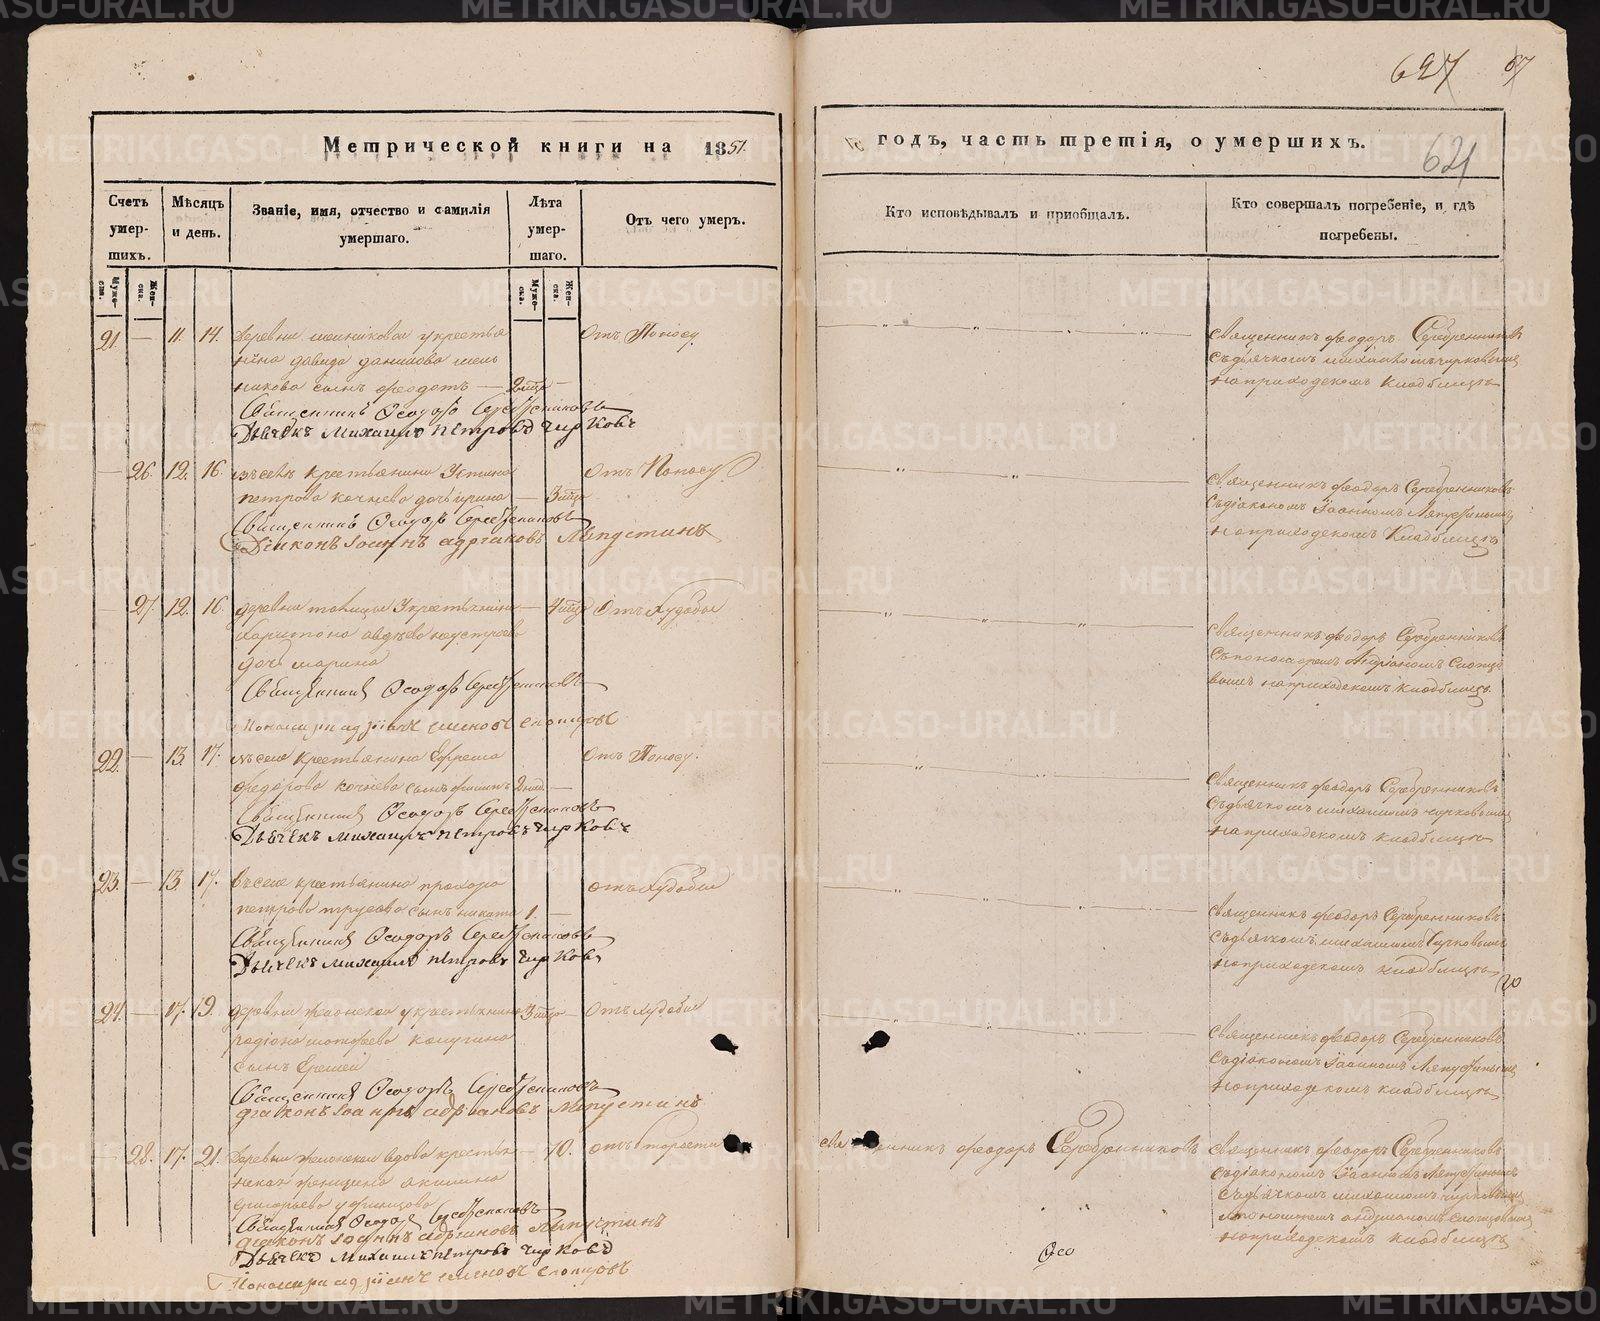 627 67
621
Метрической книги на 1851. годъ, часть третія, о умершихъ.
Счетъ умер-шихъ.
Мѣсяцъ и день.
Званіе, имя, отчество и фамилія умершаго.
Лѣта умер-шаго.
Отъ чего умеръ.
Кто исповѣдывалъ и пріобщалъ.
Кто совершалъ погребеніе, и гдѣ погребены.
Муже-ска. Жен-ска.
Муже-ска. Жен-ска.
21. — 11. 14. Деревни у крестья Отъ Поносу.
нина Давида Данилова мель
никова сынъ Федотъ — 2
Священникъ Феодоръ Серебренниковъ
Дьячекъ Михаилъ Петровъ Чирковъ
священникъ Феодоръ Серебренниковъ
съ дьячкомъ Михаиломъ Чирковымъ
на приходскомъ кладбищѣ
— 26. 12. 16. крестьянина Устина Отъ Поносу
Петрова Кочнева дочь Ирина — 3
Священникъ Феодоръ Серебренниковъ
Діаконъ Іоаннъ Адріановъ Ляпустинъ
священникъ Феодоръ Серебренниковъ
съ діакономъ Іоанномъ Ляпустинымъ
на приходскомъ кладбищѣ
— 27. 12. 16. деревни у крестьянина — 4 Отъ Худобы
Харитона Авдѣева
дочь Марина
Священникъ Феодоръ Серебренниковъ
Пономарь Адріанъ Слопцовъ
священникъ Феодоръ Серебренниковъ
съ пономаремъ Андріаномъ Слопцо
вымъ на приходскомъ кладбищѣ
22. — 13. 17. въ селѣ крестьянина Ефрема Отъ Поносу.
Федорова Кочнева сынъ 2
Священникъ Феодоръ Серебренниковъ
Дьячекъ Михаилъ Петровъ Чирковъ
священникъ Феодоръ Серебренниковъ
съ дьячкомъ Михаиломъ Чирковымъ
на приходскомъ кладбищѣ
23. — 13. 17. въ селѣ крестьянина Прохора отъ Худобы
Петрова сынъ Никита 1. —
Священникъ Феодоръ Серебренниковъ
Дьячекъ Михаилъ Петровъ Чирковъ
священникъ Феодоръ Серебренниковъ
съ дьячкомъ Михаиломъ Чирковымъ
на приходскомъ кладбищѣ
24. — 17. 19. деревни у крестьянина 3 — Отъ Худобы
Родіона Калугина
сынъ Еремей
Священникъ Феодоръ Серебренниковъ
діаконъ Іоаннъ Адріановъ Ляпустинъ
священникъ Феодоръ Серебренниковъ
съ діакономъ Іоанномъ Ляпустинымъ
на приходскомъ кладбищѣ
— 28. 17. 21. Деревни вдова крестьян — 70. отъ старости
ская женщина Акилина
Григорьева
Священникъ Феодоръ Серебренниковъ
діаконъ Іоаннъ Адріановъ Ляпустинъ
Дьячекъ Михаилъ Петровъ Чирковъ
Пономарь Адріанъ Слопцовъ
священникъ Феодоръ Серебренниковъ
священникъ Феодоръ Серебренниковъ
съ діакономъ Іоанномъ Ляпустинымъ
съ дьячкомъ Михаиломъ Чирковымъ
на приходскомъ кладбищѣ
METRIKI.GASO-URAL.RU